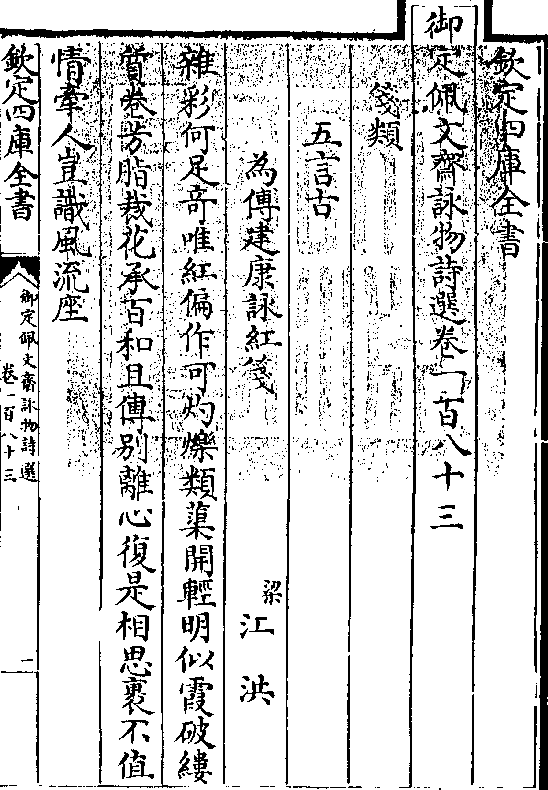 欽定四庫全書
御定佩文齋詠物詩選卷一百八十三
箋類
五言古
為傅建康詠紅箋 梁 江洪
雜彩何足奇唯紅偏作可灼爍類蕖開輕明似霞破縷
質卷芳脂裁花承百和且傳别離心復是相思裹不值
情牽人豈識風流座
欽定四庫全書 御定佩文齋詠物詩選 卷一百八十三 一